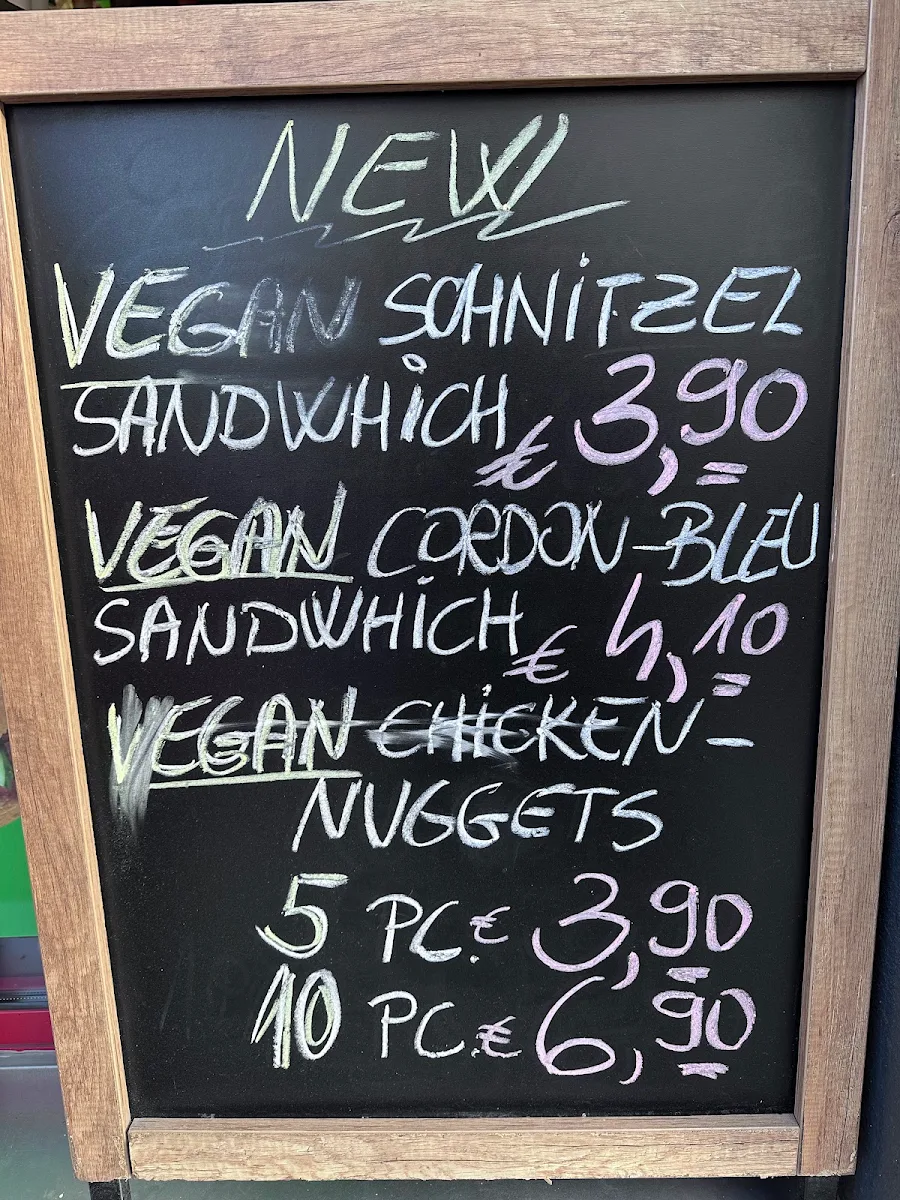 NEW
VEGAN SCHNiTZEL
SANDWHiCH € 3,90
VEGAN CORDON-BLEU
SANDWHiCH € 4,10
VEGAN CHiCKEN-
NUGGETS
5 PC. € 3,90
10 PC. € 6,90